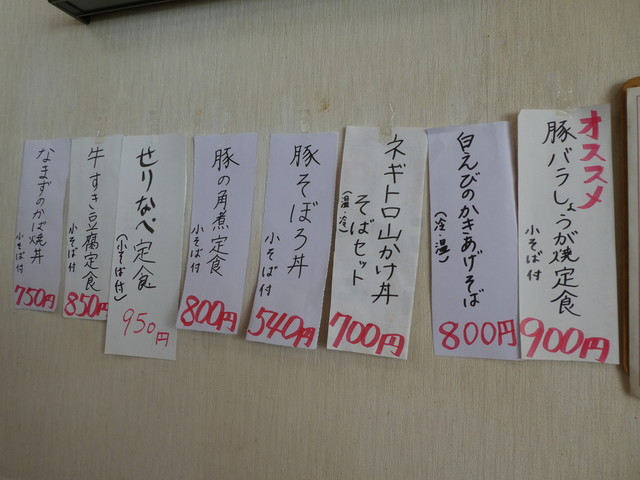 オススメ
豚バラしょうが焼定食
小そば付
900円
白えびのかきあげそば
(冷・温)
800円
ネギトロ山かけ丼
そばセット
(温・冷)
700円
豚そぼろ丼
小そば付
540円
豚の角煮定食
小そば付
800円
せりなべ定食
(小そば付)
950円
牛すき豆腐定食
小そば付
850円
なまずのかば焼丼
小そば付
750円